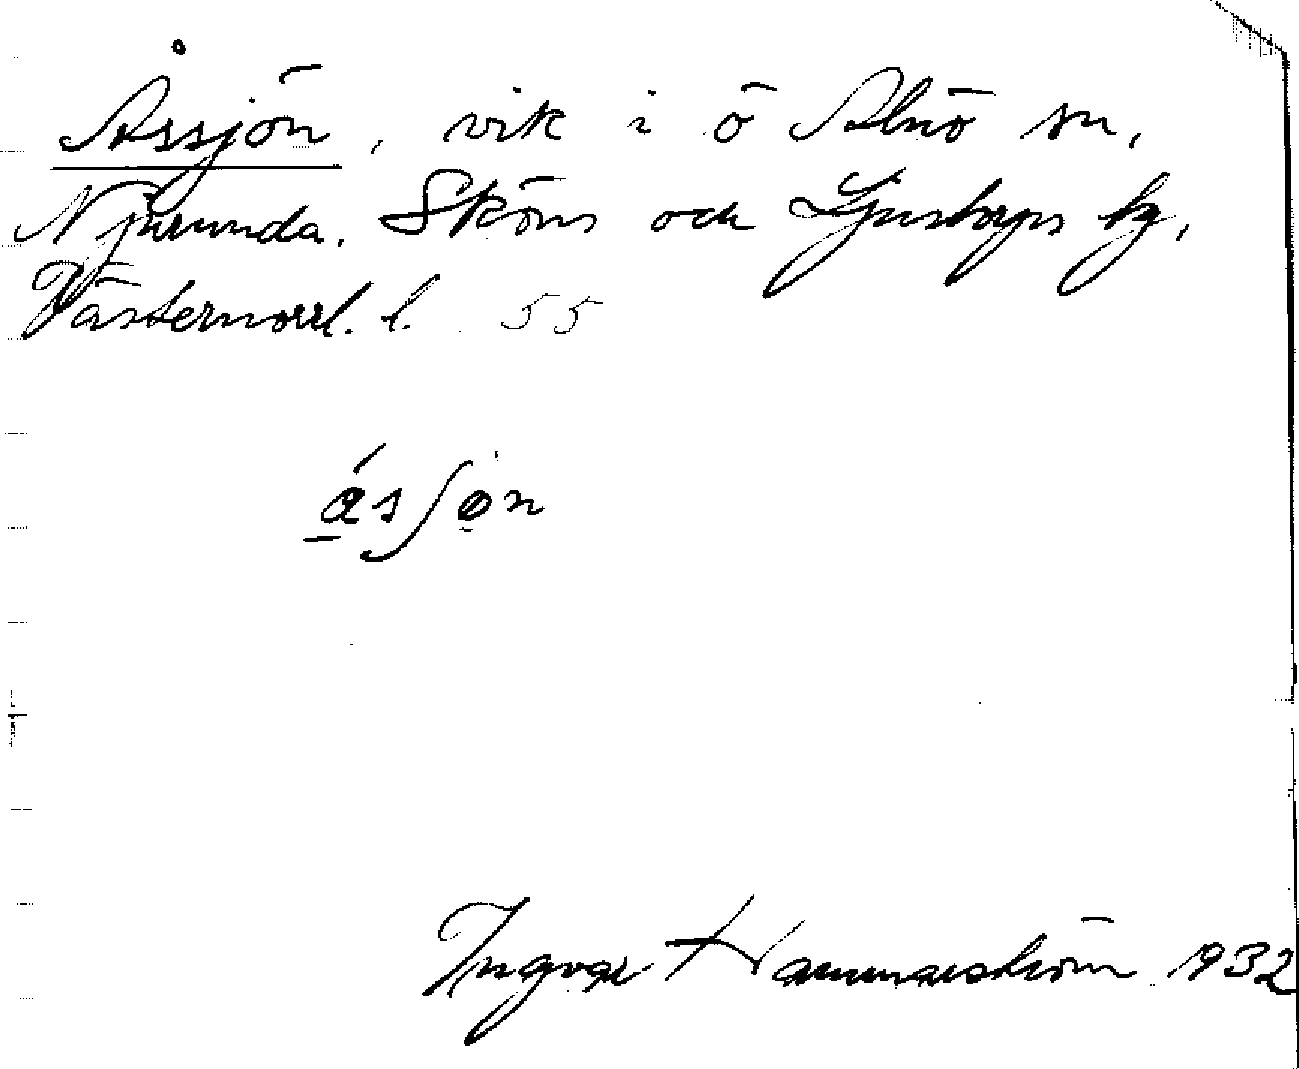 Åssjön, vik i ö Alnö sn,
Njurunda, Sköns och Ljustorps tg,
Västernorrl. l. 55
åsʃøn
Ingvar Hammarström 1932